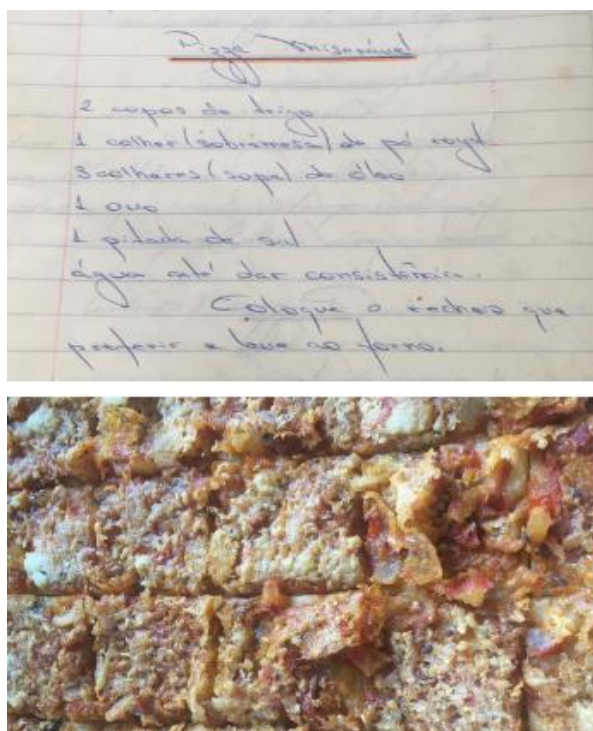 Pizza Miserável
2 copos de trigo
1 colher (sobremesa) de pó royal
3 colheres (sopa) de óleo
1 ovo
1 pitada de sal
água até dar consistência.
Coloque o recheo que
preferir e leve ao forno.